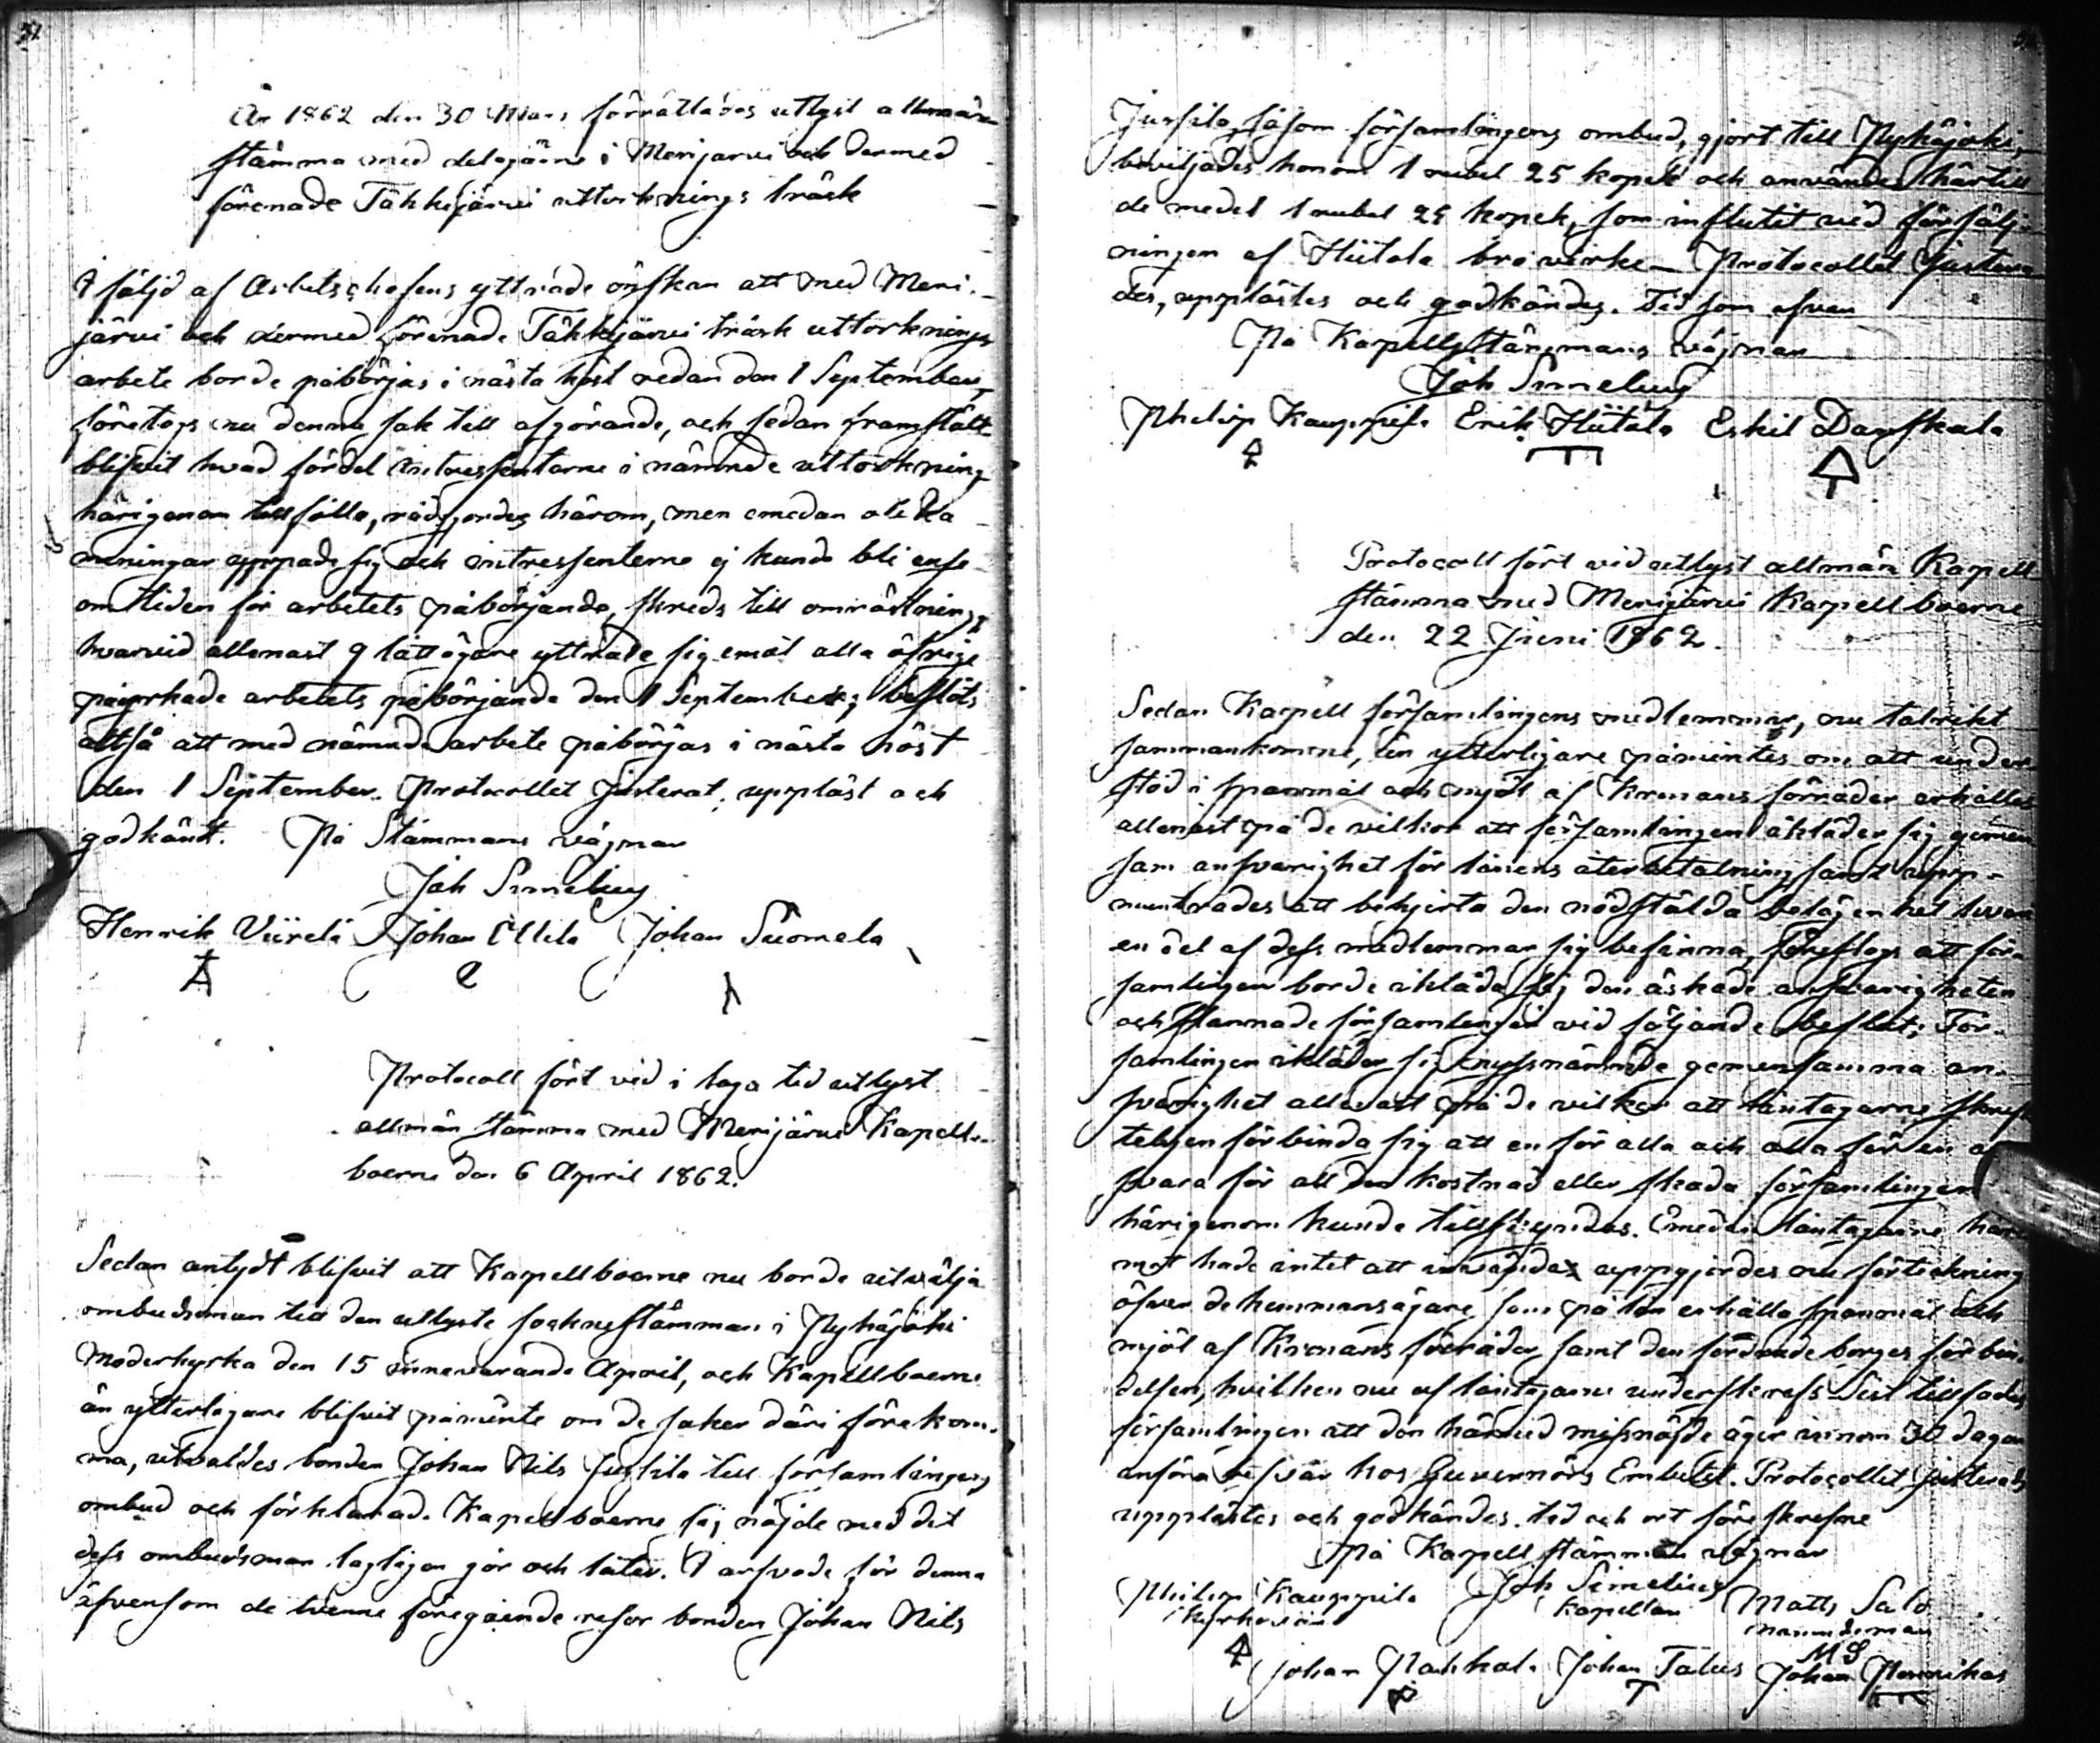 År 1862 den 30 Mars förrättades utlyst allmän
stämma med delegäare i Merijärvi och dermed
förenade Tähkyjärvi uttorknings träsk
I följd af Arbetschefens yttrade önskan att med Meri-
järvi och dermed förenade Tähkyjärvi träsk uttorknings
arbete borde påbörjas i nästa höst redan den 1 September,
företogs nu denna sak till afgörande, och sedan framstält
blifvit hvad fördel intressenterne i nämnde uttorkning
härigenom tillfölle, rådgjordes härom, men emedan olika
meningar yppade sig och intressenterne ej kunde bli ense
om tiden för arbetets påbörjande, skreds till omröstning,
hvarvid allenast 9 lottägare yttrade sig emot alla öfrige
påyrkade arbetets påbörjande den 1 September; beslöts
altså att med nämnde arbete påbörjas i nästa höst
den 1 September. Protocollet Justerat, uppläst och
godkänt. På Stämmans vägnar
Joh Simelius
Henrik Viirelä Johan Ollila Johan Suomela
Protocoll fört vid i laga tid utlyst
allmän stämma med Merijärvi Kapell-
boerne den 6 April 1862.
Sedan antydt blifvit att Kapellboerne nu borde utvälja
ombudsman till den utlyste socknestämman i Pyhäjoki
Moderkyrka den 15 innevarande April, och Kapellboerne
än ytterligare blifvit påminte om de saker däri förekom-
ma, utvaldes bonden Johan Nils Jussila till församlingens
ombud och förklarade Kapellboerne sig nöjde med det
dess ombudsman lagligen gör och låter. I arfvode för denna
äfvensom de tvenne föregående resor bonden Johan Nils
Jussila, såsom församlingens ombud, gjort till Pyhäjoki,
beviljades honom 1 rubel 25 kopek och användes härtill
de medel 1 rubel 25 kopek, som influtit vid försälj-
ningen af Hiitola bro virke. Protocollet Justera-
des, upplästes och godkändes. Tid som ofvan
På Kapellstämmans vägnar
Joh Simelius
Philip Kauppila Erik Hiitola Eskil Dagskola
Protocoll fört vid utlyst allmän Kapell
stämma med Merijärvi Kapellboerne
den 22 Juni 1862.
Sedan Kapell församlingens medlemmar, nu talrikt
sammankomne, än ytterligare påmintes om att under-
stöd i spanmål och mjöl af Kronans förråder erhålles
allenast på de vilkor att församlingen ikläder sig gemen
sam ansvarighet för lånens återbetalning samt upp-
muntrades att behjerta den nödstälda belägenhet hvari
en del af dess medlemmar sig befinna, föreslogs att för-
samlingen borde ikläda sig den äskade ansvarigheten
och stannade församlingen vid följande beslut: För-
samlingen ikläder sig nyssnämnde gemensamma an-
svarighet allenast på de vilkor att låntagarne skrift
teligen förbinda sig att en för alla och alla för en
svara för all den kostnad eller skada församlingen
härigenom kunde tillskyndas. Emedan låntagarne här
mot hade intet att invända uppgjordes nu förteckning
öfver de hemmansägare som på lån erhålla spanmål och
mjöl af Kronans förråder samt den fordrade borges förbin-
delsen, hvilken nu af låntagarne underskrefs. Sist tillsades
församlingen att den härmed missnöjde äger innom 30 dagar
anföra besvär hos Guvernörs Embetet. Protocollet Justerades
upplästes och godkändes. tid och ort föreskrefne
På Kapell stämmans vägnar
Joh Simelius
Kapellan
Philip Kauppila
Kyrkovärd
Matts Salo
Nämndeman
MS
Johan Pahkala Johan Talus Johan